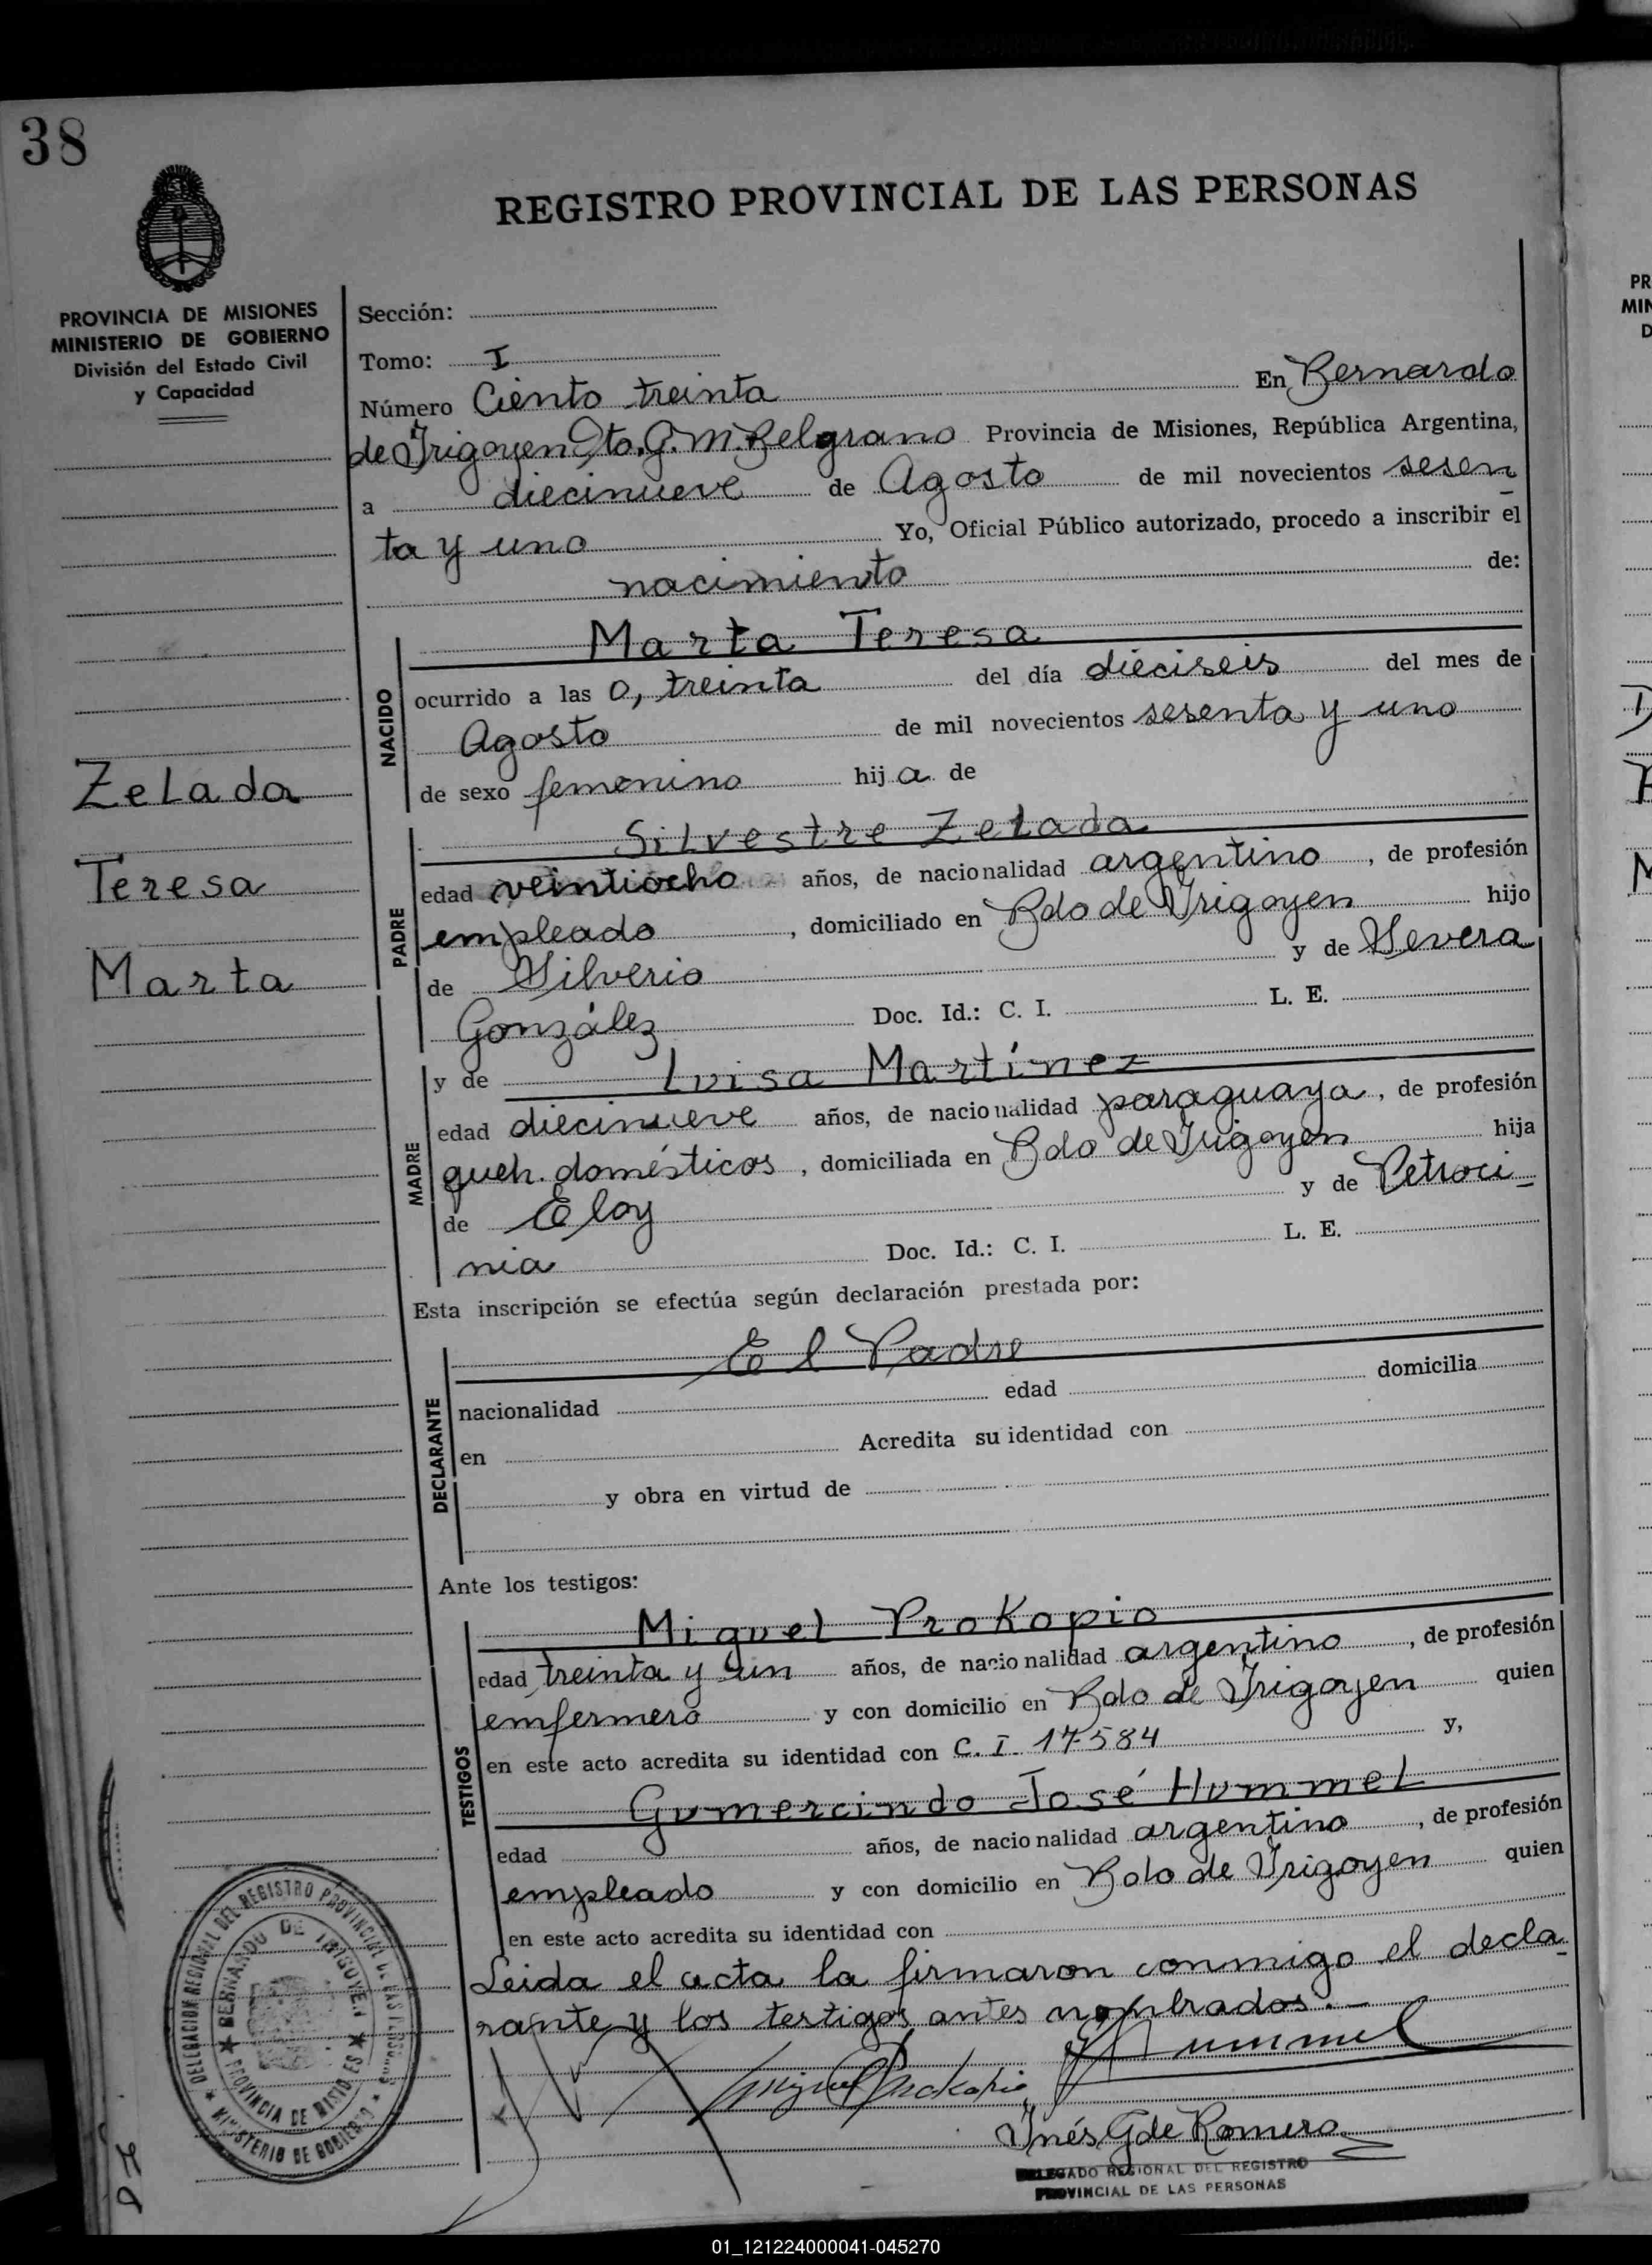 38
REGISTRO PROVINCIAL DE LAS PERSONAS
PROVINCIA DE MISIONES
MINISTERIO DE GOBIERNO
División del Estado Civil
y Capacidad
Zelada
Teresa
Marta
Sección:
Tomo: I
Número Ciento treinta En Bernardo
de Irigoyen Dto. G. M. Belgrano Provincia de Misiones, República Argentina,
a diecinueve de Agosto de mil novecientos sesen
ta y uno Yo, Oficial Público autorizado, procedo a inscribir el
nacimiento de:
NACIDO
Marta Teresa
ocurrido a las 0, treinta del día dieciseis del mes de
Agosto de mil novecientos sesenta y uno
de sexo femenino hija de
PADRE
Silvestre Zelada
edad veintiocho años, de nacionalidad argentino, de profesión
empleado, domiciliado en Bdo de Irigoyen hijo
de Silverio y de Severa
González Doc. Id.: C. I. L. E.
MADRE
y de Luisa Martínez
edad diecinueve años, de nacionalidad paraguaya, de profesión
queh. domésticos, domiciliada en Bdo de Irigoyen hija
de Eloy y de Petroci-
nia Doc. Id.: C. I. L. E.
Esta inscripción se efectúa según declaración prestada por:
DECLARANTE
El Padre
nacionalidad edad domicilia
en Acredita su identidad con
y obra en virtud de
Ante los testigos:
TESTIGOS
Miguel Prokopio
edad treinta y un años, de nacionalidad argentino, de profesión
emfermero y con domicilio en Bdo de Irigoyen quien
en este acto acredita su identidad con C. I. 17584 y,
Gumercindo José Hummel
edad años, de nacionalidad argentino, de profesión
empleado y con domicilio en Bdo de Irigoyen quien
en este acto acredita su identidad con
Leida el acta la firmaron conmigo el decla
rante y los testigos antes nombrados.-
Miguel Prokopio
Hummel
Inés G de Romero
DELEGADO REGIONAL DEL REGISTRO
PROVINCIAL DE LAS PERSONAS
DELEGACION REGIONAL DEL REGISTRO PROVINCIAL DE LAS PERSONAS
BERNARDO DE IRIGOYEN
PROVINCIA DE MISIONES
MINISTERIO DE GOBIERNO
01_121224000041-045270